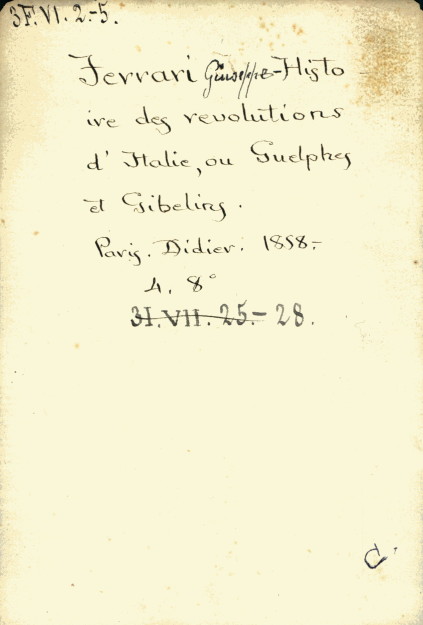 3F.VI.2.-5.
Ferrari Giuseppe - Histo-
ire des revolutions
d'Italie, ou Guelphes
et Gibelins.
Paris. Didier. 1858.-
4. 8°
3I.VII.25.-28.
C